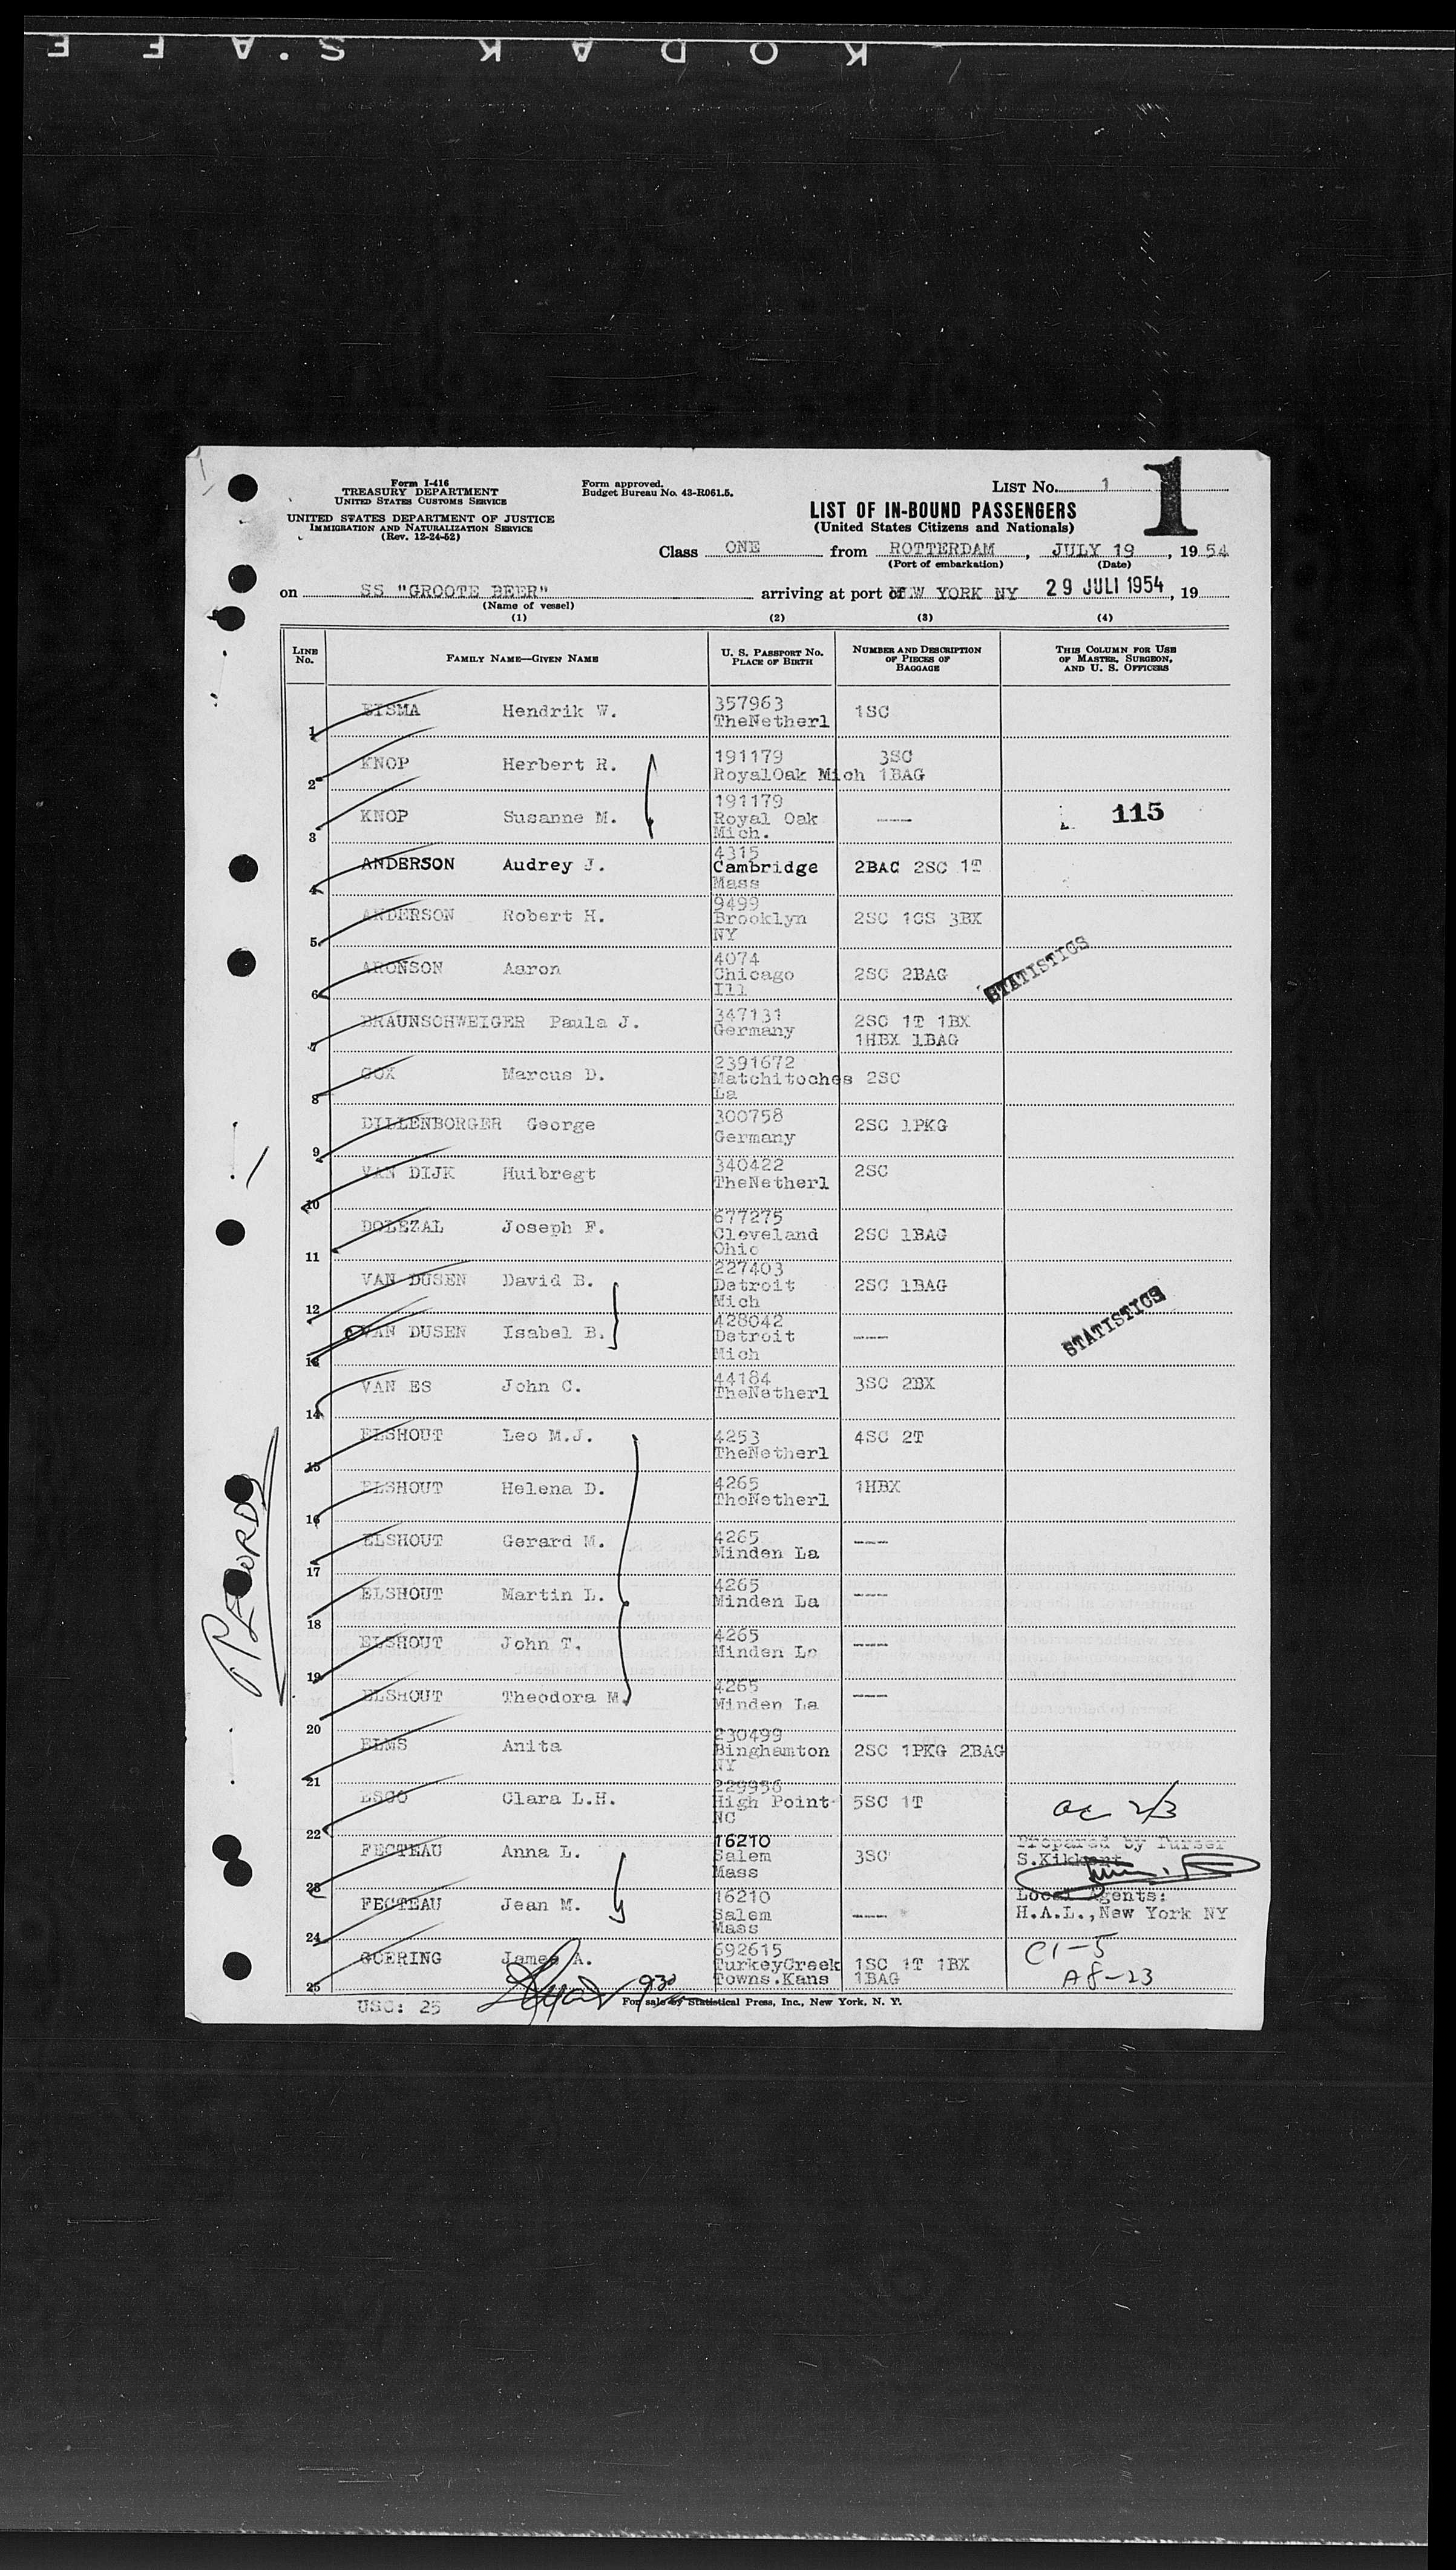 KODAK S.A F E
Form I-416
TREASURY DEPARTMENT
UNITED STATES CUSTOMS SERVICE
UNITED STATES DEPARTMENT OF JUSTICE
IMMIGRATION AND NATURALIZATION SERVICE
(Rev. 12-24-52)
Form approved.
Budget Bureau No. 43-R061.5.
LIST No. 1
1
LIST OF IN-BOUND PASSENGERS
(United States Citizens and Nationals)
Class ONE from ROTTERDAM, JULY 19, 1954
(Port of embarkation) (Date)
on SS "GROOTE BEER" arriving at port of NEW YORK NY 29 JULI 1954, 19
(Name of vessel)
(1) (2) (3) (4)
LINE No. FAMILY NAME—GIVEN NAME U. S. PASSPORT No. PLACE OF BIRTH NUMBER AND DESCRIPTION OF PIECES OF BAGGAGE THIS COLUMN FOR USE OF MASTER, SURGEON, AND U. S. OFFICERS
1 EISMA Hendrik W. 357963 TheNetherl 1SC
2 KNOP Herbert R. 191179 RoyalOak Mich 3SC 1BAG
3 KNOP Susanne M. 191179 Royal Oak Mich. --- 115
4 ANDERSON Audrey J. 4315 Cambridge Mass 2BAG 2SC 1T
5 ANDERSON Robert H. 9499 Brooklyn NY 2SC 1CS 3BX
6 ARONSON Aaron 4074 Chicago Ill 2SC 2BAG STATISTICS
7 BRAUNSCHWEIGER Paula J. 347131 Germany 2SC 1T 1BX 1HBX 1BAG
8 COX Marcus D. 2391672 Matchitoches La 2SC
9 DILLENBORGER George 300758 Germany 2SC 1PKG
10 VAN DIJK Huibregt 340422 TheNetherl 2SC
11 DOLEZAL Joseph F. 677275 Cleveland Ohio 2SC 1BAG
12 VAN DUSEN David B. 227403 Detroit Mich 2SC 1BAG
13 VAN DUSEN Isabel B. 428042 Detroit Mich --- STATISTICS
14 VAN ES John C. 44184 TheNetherl 3SC 2BX
15 ELSHOUT Leo M.J. 4253 TheNetherl 4SC 2T
16 ELSHOUT Helena D. 4265 TheNetherl 1HBX
17 ELSHOUT Gerard M. 4265 Minden La ---
18 ELSHOUT Martin L. 4265 Minden La ---
19 ELSHOUT John T. 4265 Minden La ---
20 ELSHOUT Theodora M. 4265 Minden La ---
21 ELMS Anita 230499 Binghamton NY 2SC 1PKG 2BAG
22 ESCO Clara L.H. 229956 High Point NC 5SC 1T
23 FECTEAU Anna L. 16210 Salem Mass 3SC Prepared by Purser S.Kikkert
24 FECTEAU Jean M. 16210 Salem Mass --- Local Agents: H.A.L.,New York NY
25 GOERING James A. 692615 TurkeyCreek Towns.Kans 1SC 1T 1BX 1BAG C1-5 A8-23
USC: 25
For sale by Statistical Press, Inc., New York, N. Y.
RECORDS